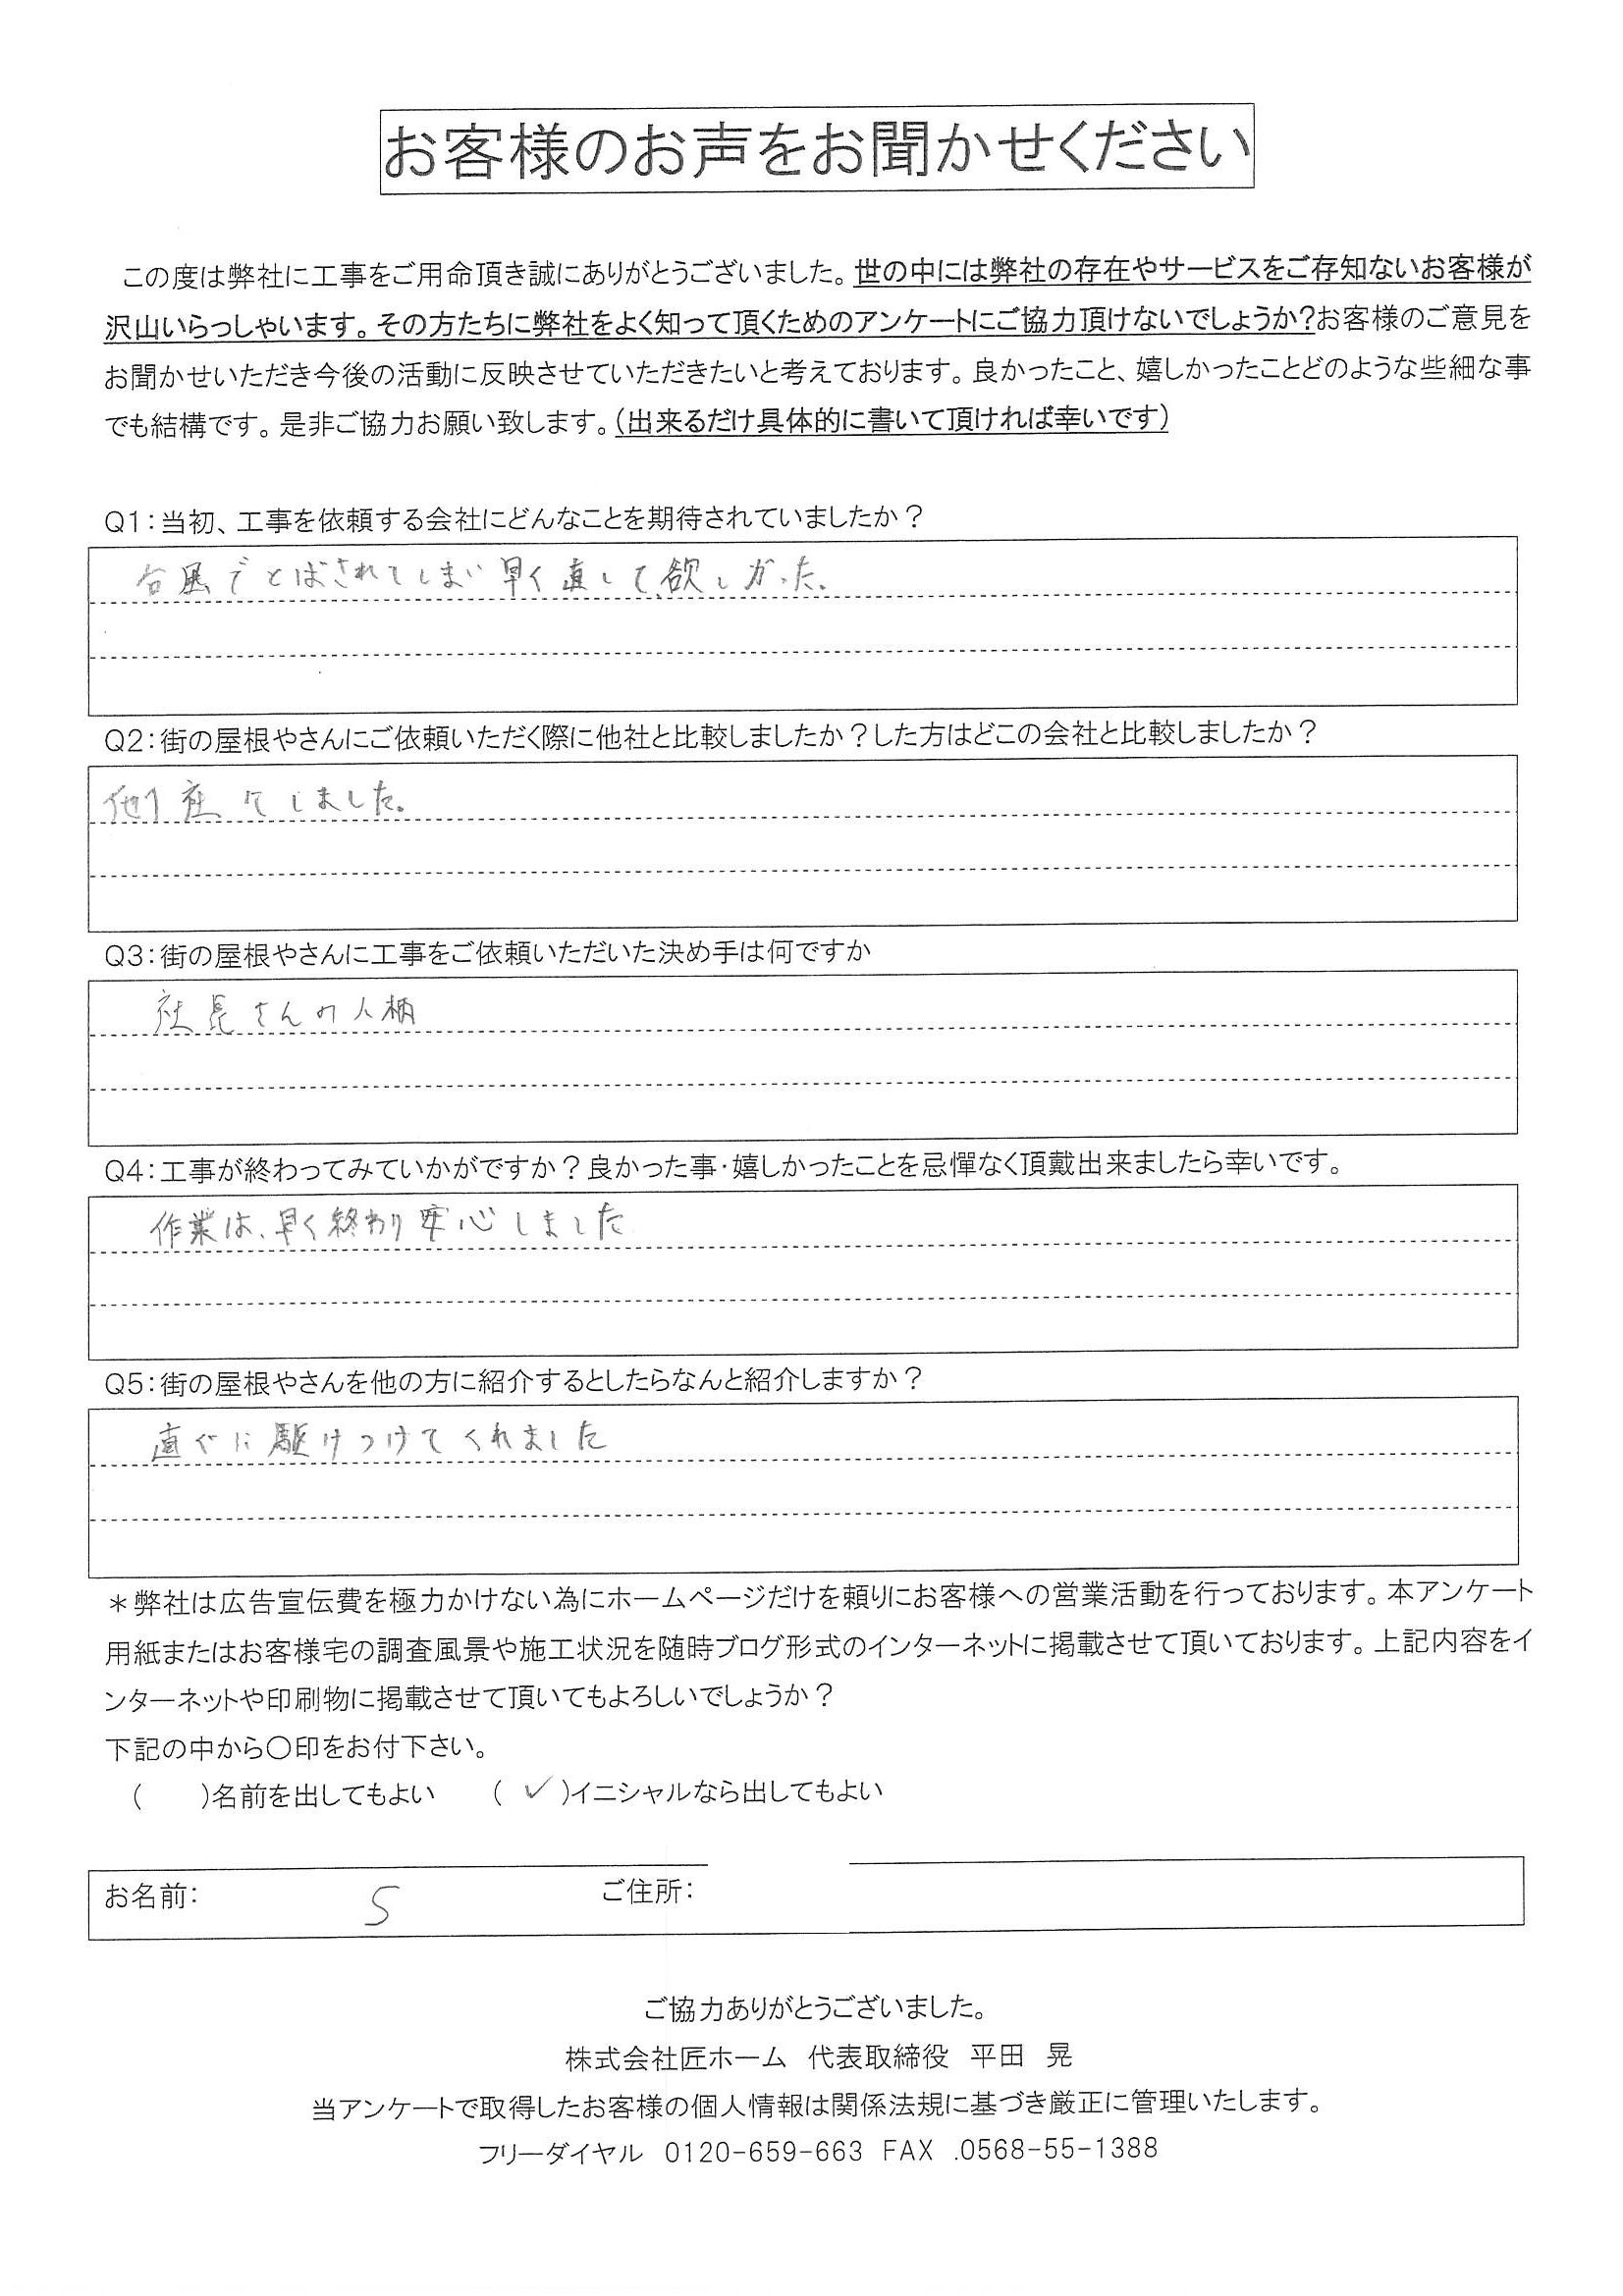 お客様のお声をお聞かせください
この度は弊社に工事をご用命頂き誠にありがとうございました。世の中には弊社の存在やサービスをご存知ないお客様が
沢山いらっしゃいます。その方たちに弊社をよく知って頂くためのアンケートにご協力頂けないでしょうか?お客様のご意見を
お聞かせいただき今後の活動に反映させていただきたいと考えております。良かったこと、嬉しかったことどのような些細な事
でも結構です。是非ご協力お願い致します。(出来るだけ具体的に書いて頂ければ幸いです)
Q1:当初、工事を依頼する会社にどんなことを期待されていましたか?
台風でとばされてしまい早く直して欲しかった。
Q2:街の屋根やさんにご依頼いただく際に他社と比較しましたか?した方はどこの会社と比較しましたか?
他1社しました。
Q3:街の屋根やさんに工事をご依頼いただいた決め手は何ですか
社長さんの人柄
Q4:工事が終わってみていかがですか?良かった事・嬉しかったことを忌憚なく頂戴出来ましたら幸いです。
作業は、早く終わり安心しました
Q5:街の屋根やさんを他の方に紹介するとしたらなんと紹介しますか?
直ぐに駆けつけてくれました
*弊社は広告宣伝費を極力かけない為にホームページだけを頼りにお客様への営業活動を行っております。本アンケート
用紙またはお客様宅の調査風景や施工状況を随時ブログ形式のインターネットに掲載させて頂いております。上記内容をイ
ンターネットや印刷物に掲載させて頂いてもよろしいでしょうか?
下記の中から〇印をお付下さい。
( )名前を出してもよい (✓)イニシャルなら出してもよい
お名前: S ご住所:
ご協力ありがとうございました。
株式会社匠ホーム 代表取締役 平田 晃
当アンケートで取得したお客様の個人情報は関係法規に基づき厳正に管理いたします。
フリーダイヤル 0120-659-663 FAX .0568-55-1388